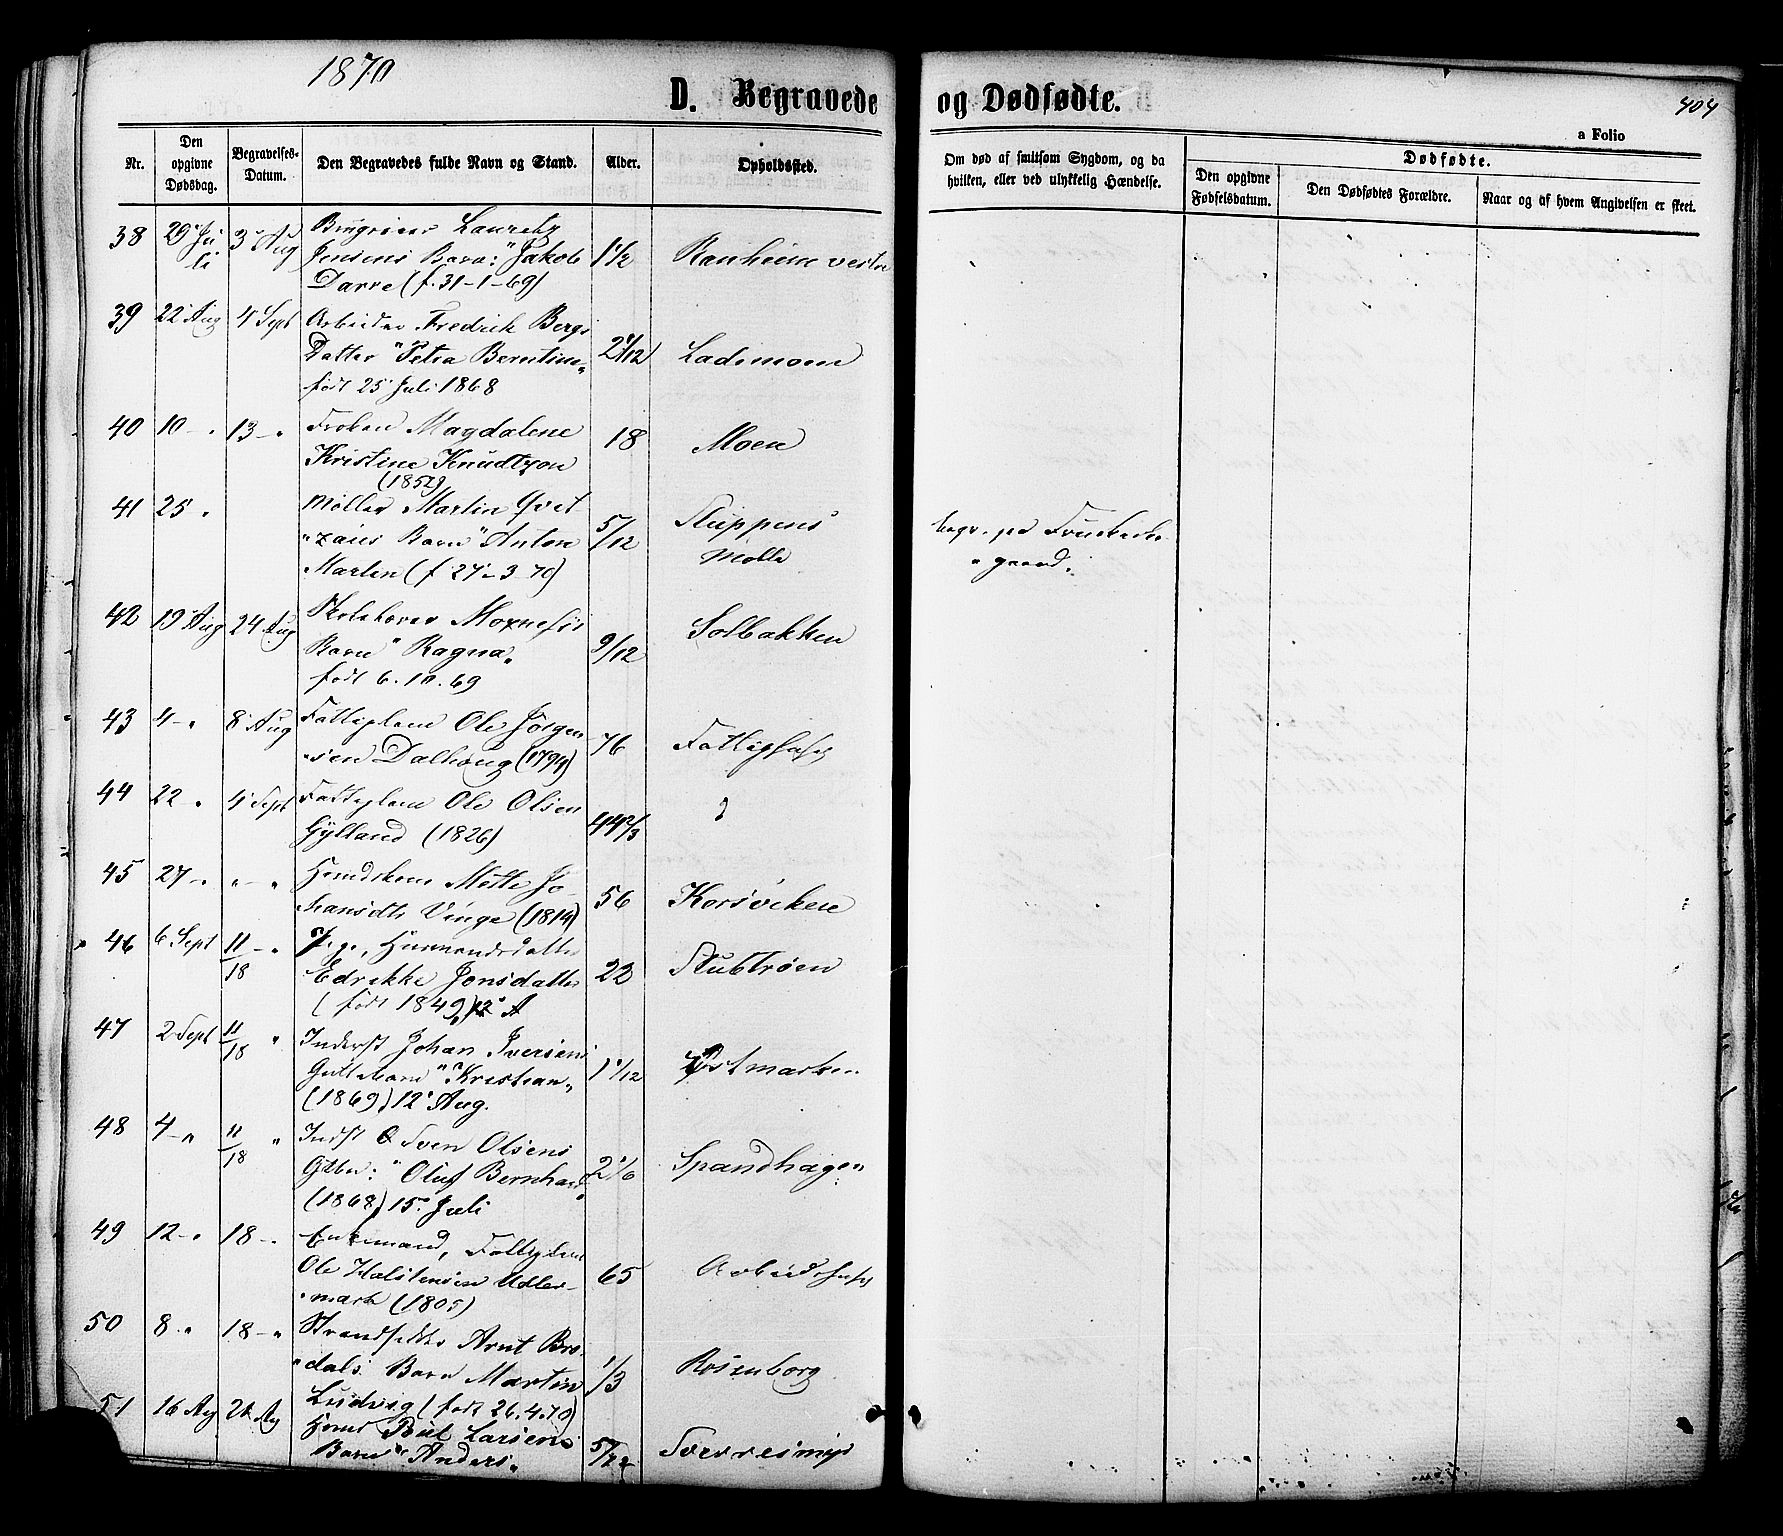 1870
D. Begravede og Dødfødte.
404
a Folio
Nr.
Den opgivne Dødsdag.
Begravelses-Datum.
Den Begravedes fulde Navn og Stand.
Alder.
Opholdssted.
Om død af smitsom Sygdom, og da hvilken, eller ved ulykkelig Hændelse.
Dødfødte.
Den opgivne Fødselsdatum.
Den Dødfødtes Forældre.
Naar og af hvem Angivelsen er skeet.
38 29 Juli 3 Aug Lauretz
Jensens Barn: "Jakob 1 1/2 Ranheim vestre
Darre (f. 31-1-69)
39 22 Aug 4 Sept Arbeider Fredrik Bergs
Datter "Petra Berntine" 2 1/12 Lademoen
født 25 Juli 1868
40 10 - " 13 - " Frøken Magdalene 18 Moen
Kristine Knudtzon
(1852)
41 25 " Møller Martin Qvet 5/12 Sluppens
"zaies Barn "Anton Mølle begr. på
Martin (f 27-3-70) " gaard.
42 19 Aug 24 Aug Skolelærer Moxnes's
Barn "Ragna" 9/12 Solbakken
født 6.10.69
43 4 - " 8 Aug Fattiglem Ole Jørgen
"sen Dalhaug (1794) 76 Fattighuset
44 22 " 4 Sept Fattiglem Ole Olsen
Gylland (1826) 44 2/3 ?
45 27 - " " - " Mette Jo
hansdtr Vinge (1814) 56 Korsviken
46 6 Sept 11/18 - " Pige, Husmandsdatter
Jonsdatter 22 Stubtrøen
(født 1849) 12 A
47 2 Sept 11/18 " Inderst Johan Iversens
Guttebarn "Kristian" 1 1/12 Østmarken
(1869) 12 Aug.
48 4 - " 11/18 " Indst Sven Olsens
Gtbn: "Oluf Bernhard 2 1/6 Spandhagen
(1868) 15 Juli
49 12 - " 18 - " Enkemand, Fattiglem
Ole Halstensen Udler- 65 Arbeidshuset
"mark (1805)
50 8 " 18 - " Strandsidder Arnt Bro
"dals Barn Martin 1/3 Rosenborg
Ludvig (født 26.4.70)
51 16 Ag 21 Ag Poul Larsens
Barn "Anders" 5/12